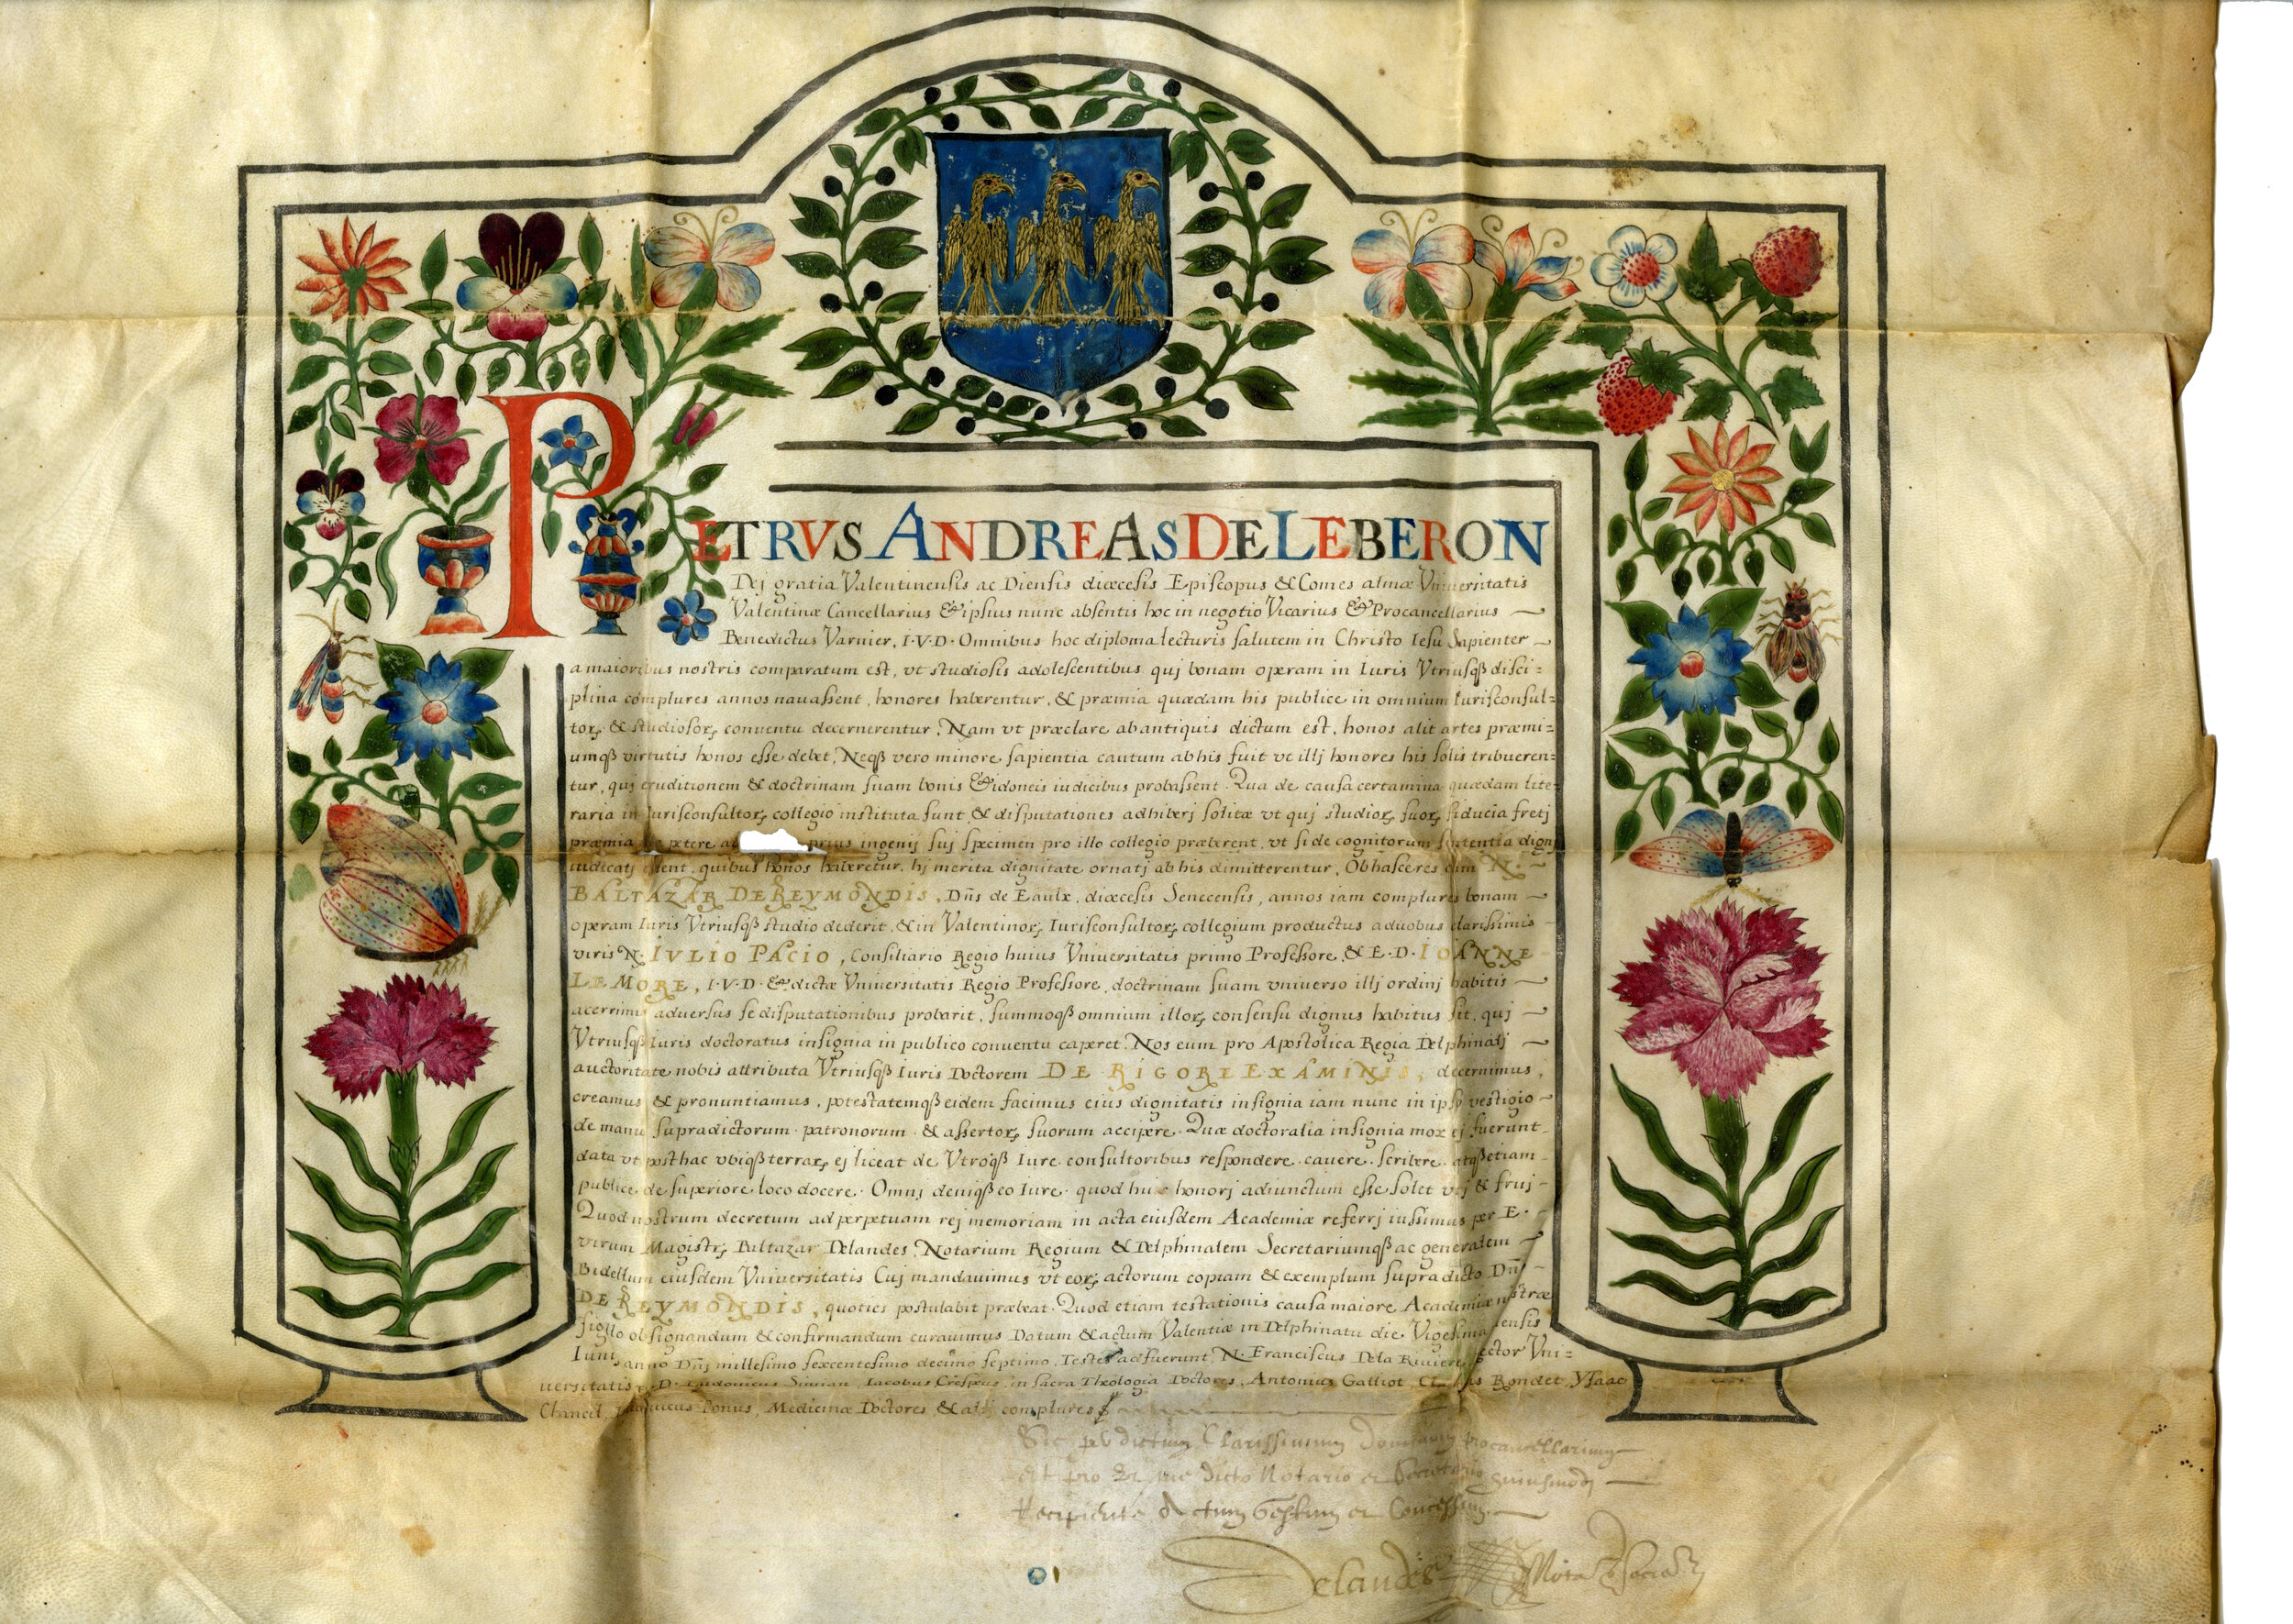 PETRVS ANDREAS DE LEBERON
Dej gratia Valentinensis ac Diensis diœcesis Episcopus & Comes almæ Vniuersitatis
Valentinæ Cancellarius & ipsius nunc absentis hoc in negotio Vicarius & Procancellarius
Benedictus Varnier, I·V·D· Omnibus hoc diploma lecturis salutem in Christo Iesu Sapienter
a maioribus nostris comparatum est, vt studiosis adolescentibus quj bonam operam in Iuris Vtriusqß disci=
plina complures annos nauassent, honores haberentur, & præmia quædam his publice in omnium Iurisconsul=
torꝝ & studiosorꝝ conuentu decernerentur, Nam vt præclare ab antiquis dictum est, honos alit artes præmi=
umqß virtutis honos esse debet, Neqß vero minore sapientia cautum ab his fuit vt illj honores his solis tribueren=
tur, quj eruditionem & doctrinam suam bonis & idoneis iudicibus probassent. Qua de causa certamina quædam lite=
raria in Iurisconsultorꝝ collegio instituta sunt & disputationes adhiberj solitæ vt quj studiorꝝ suorꝝ fiducia fretj
præmia petere prius ingenij suj specimen pro illo collegio præberent, vt si de cognitorum sententia dignj
iudicatj essent, quibus honos haberetur, hj merita dignitate ornatj ab his dimitterentur, Ob hasce res cum N.
BALTAZAR DE REYMONDIS, Dñs de Eaulx, diœcesis Senecensis, annos iam complures bonam
operam Iuris Vtriusqß studio dederit, & in Valentinorꝝ Iurisconsultorꝝ collegium productus a duobus clarissimis
viris N. IVLIO PACIO, Consiliario Regio huius Vniuersitatis primo Professore, & E·D· IOANNE
LE MORE, I·V·D· & dictæ Vniuersitatis Regio Professore, doctrinam suam vniuerso illj ordinj habitis
acerrimis aduersus se disputationibus probarit, summoqß omnium illorꝝ consensu dignus habitus sit, quj
Vtriusqß Iuris doctoratus insignia in publico conuentu caperet. Nos eum pro Apostolica Regia Delphinalj
auctoritate nobis attributa Vtriusqß Iuris Doctorem DE RIGORE EXAMINIS, decernimus,
creamus & pronuntiamus, potestatemqß eidem facimus eius dignitatis insignia iam nunc in ipso vestigio
de manu supradictorum patronorum & assertorꝝ suorum accipere. Quæ doctoralia insignia mox ej fuerunt
data vt posthac vbiqß terrarꝝ ej liceat de Vtroqß Iure consultoribus respondere, cauere, scribere, atqß etiam
publice de superiore loco docere. Omnj deniqß eo Iure quod huic honorj adiunctum esse solet vtj & fruj
Quod nostrum decretum ad perpetuam rej memoriam in acta eiusdem Academiæ referrj iussimus per E.
virum Magistrꝝ Baltazar Delandes, Notarium Regium & Delphinalem Secretariumqß ac generalem
Bidellum eiusdem Vniuersitatis Cuj mandauimus vt eorꝝ actorum copiam & exemplum supra dicto Dño
DE REYMONDIS, quoties postulabit præbeat. Quod etiam testationis causa maiore Academiæ nostræ
sigillo obsignandum & confirmandum curauimus Datum & actum Valentiæ in Delphinatu die Vigesima mensis
Iunij anno Dñj millesimo sexcentesimo decimo septimo. Testes adfuerunt N. Franciscus Dela Riuiere Rector Vni=
uersitatis D. Ludouicus Simian, Iacobus Crespeus, in sacra Theologia Doctores, Antonius Galliot, Rondet, Ysaac
Chancel, Ludouicus Ponus, Medicinæ Doctores & alij complures
Sic dictum Clarissimum Dominum procancellarium
Et pro dicto Notario et Secretario
Recipiente actum gestum et Concessum
Delandes